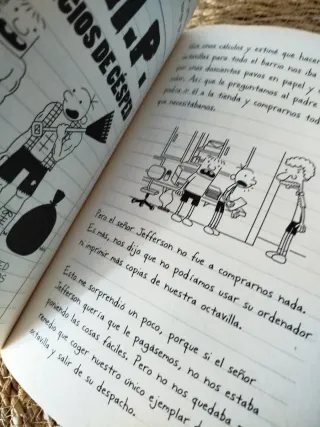 I.P.
CIOS DE CÉSPED
hice unos cálculos y estimé que hacer
octavillas para todo el barrio nos iba
por unos doscientos pavos en papel y
Así que le preguntamos al padre
podía ir él a la tienda y comprarnos tod
que necesitábamos.
Pero el señor Jefferson no fue a comprarnos nada.
Es más, nos dijo que no podíamos usar su ordenador
ni imprimir más copias de nuestra octavilla.
Esto me sorprendió un poco, porque si el señor
Jefferson quería que le pagásemos, no nos estaba
poniendo las cosas fáciles. Pero no nos quedaba
remedio que coger nuestro único ejemplar d
octavilla y salir de su despacho.